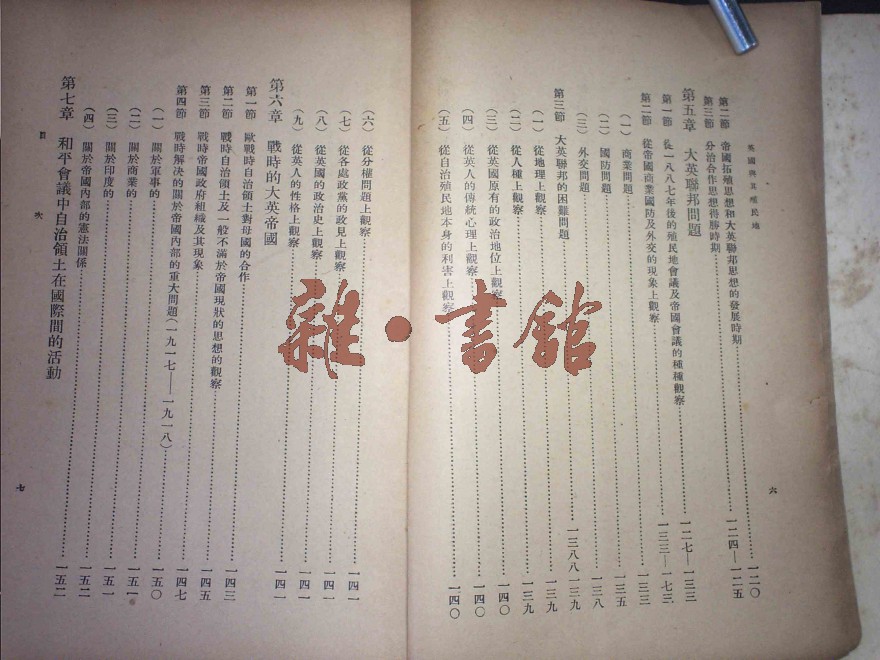 英國與其殖民地
第二節 帝國拓殖思想和大英聯邦思想的發展時期……一二〇
第三節 分治合作思想得勝時期……一二四—一二五
第五章 大英聯邦問題……一二七—一三三
第一節 從一八八七年後的殖民地會議及帝國會議的種種觀察……一三三—一七三
第二節 從帝國商業國防及外交的現象上觀察……一三三
(一) 商業問題……一三五
(二) 國防問題……一三八
(三) 外交問題……一三八八一三九
第三節 大英聯邦的困難問題……一三九
(一) 從地理上觀察……一三九
(二) 從人種上觀察……一三九
(三) 從英國原有的政治地位上觀察……一四〇
(四) 從英人的傳統心理上觀察……一四〇
(五) 從自治殖民地本身的利害上觀察……一四〇
六
(六) 從分權問題上觀察……一四一
(七) 從各處政黨的政見上觀察……一四一
(八) 從英國的政治史上觀察……一四一
(九) 從英人的性格上觀察……一四一
第六章 戰時的大英帝國……一四一
第一節 歐戰時自治領土對母國的合作……一四三
第二節 戰時自治領土及一般不滿於帝國現狀的思想的觀察
第三節 戰時帝國政府組織及其現象……一四五
第四節 戰時解決的關於帝國內部的重大問題(一九一七—一九一八)……一四七
(一) 關於軍事的……一五〇
(二) 關於商業的……一五一
(三) 關於印度的……一五一
(四) 關於帝國內部的憲法關係……一五二
第七章 和平會議中自治領土在國際間的活動……一五二
目 次
七
雜·書館